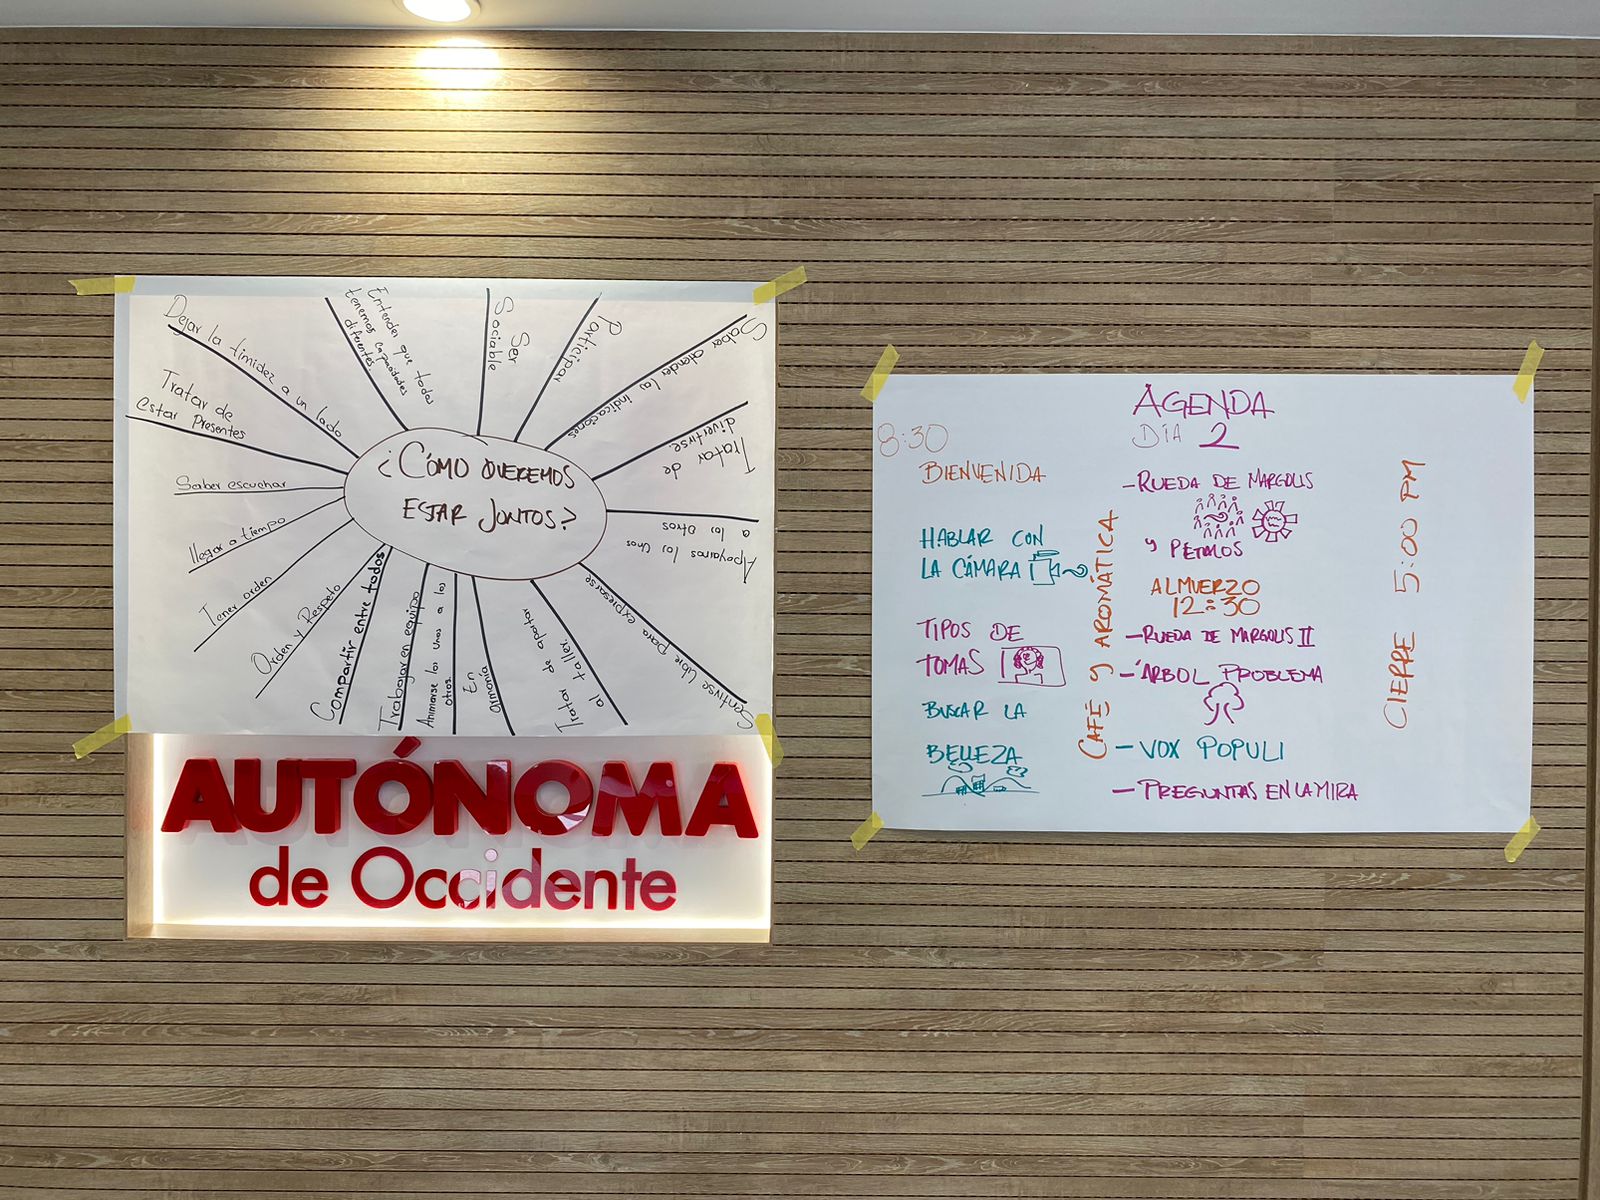 ¿CÓMO QUEREMOS
ESTAR JUNTOS?
Dejar la timidez a un lado
Entender que todos
tenemos capacidades
diferentes
Ser
Sociable
Participar
Saber atender las indicaciones
Tratar de
divertirse.
Apoyarnos los unos
a los otros
Sentirse libre para expresarse
Tratar de aportar
al taller.
En
armonía
Animarse los unos a los
otros
Trabajar en equipo
Compartir entre todos
Orden y Respeto
Tener orden
llegar a tiempo
Saber escuchar
Tratar de
estar Presentes
AUTÓNOMA
de Occidente
AGENDA
DÍA 2
8:30
BIENVENIDA
HABLAR CON
LA CÁMARA
TIPOS DE
TOMAS
BUSCAR LA
BELLEZA
CAFÉ Y AROMÁTICA
-RUEDA DE MARGOLIS
Y PÉTALOS
ALMUERZO
12:30
-RUEDA DE MARGOLIS II
-ÁRBOL PROBLEMA
- VOX POPULI
- PREGUNTAS EN LA MIRA
CIERRE 5:00 PM